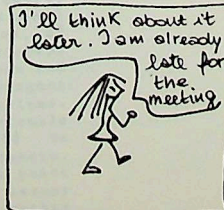 I'll think about it
later. I am already
late for
the
meeting